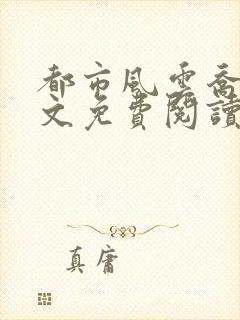 都市風雲喬
文免費閱讀
真庸